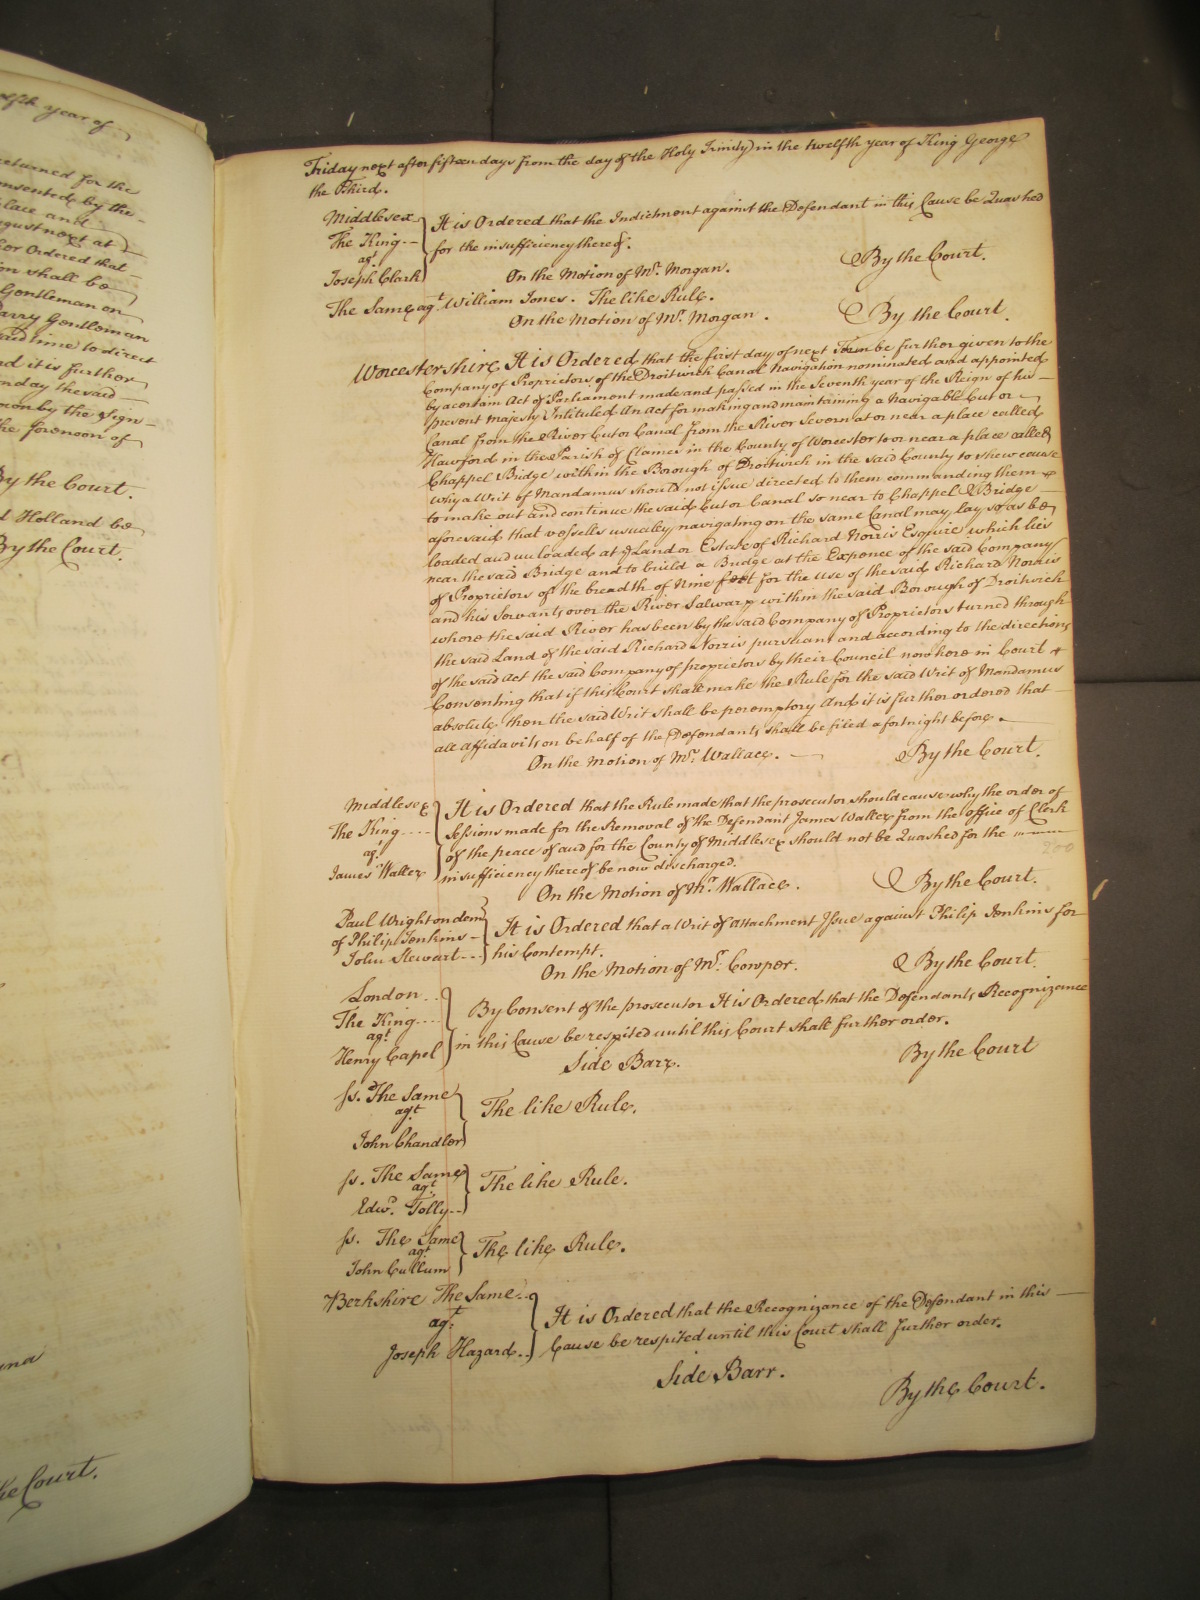 elfth year of
returned for the
onsented by the
place and
ugust next at
her Ordered that
ion shall be
Gentleman on
arry Gentleman
said time to direct
nd it is further
nday the said
own by the Sign
he forenoon of
By the Court.
d Holland be
By the Court.
the Court.
Friday next after fifteen days from the day of the Holy Trinity in the twelfth year of King George
the Third.
Middlesex
The King
agt
Joseph Clark
It is Ordered that the Indictment against the Defendant in this Cause be Quashed
for the insufficiency thereof.
On the Motion of Mr. Morgan.
By the Court.
The Same agt. William Jones. The like Rule.
On the Motion of Mr. Morgan.
By the Court.
Worcestershire It is Ordered that the first day of next Term be further given to the
Company of Proprietors of the Droitwich Canal Navigation nominated and appointed
by a certain Act of Parliament made and passed in the Seventh year of the Reign of his
present majesty Intituled An Act for making and maintaining a Navigable Cut or
Canal from the River Cut or Canal from the River Severn at or near a place called
Hawford in the Parish of Claines in the County of Worcester to or near a place called
Chappel Bridge within the Borough of Droitwich in the said County to shew cause
why a Writ of Mandamus should not issue directed to them commanding them
to make out and continue the said Cut or Canal so near to Chappel Bridge
aforesaid that vessells usually navigating on the same Canal may lay so as be
loaded and unloaded at Land or Estate of Richard Norris Esquire which lies
near the said Bridge and to build a Bridge at the Expence of the said Company
of Proprietors of the breadth of Nine feet for the use of the said Richard Norris
and his Servants over the River Salwarp within the said Borough of Droitwich
where the said River has been by the said Company of Proprietors turned through
the said Land of the said Richard Norris pursuant and according to the directions
of the said Act the said Company of proprietors by their Council now here in Court
Consenting that if this Court shall make the Rule for the said Writ of Mandamus
absolute then the said Writ shall be peremptory And it is further ordered that
all Affidavits on behalf of the Defendants shall be filed a fortnight before.
On the Motion of Mr. Wallace.
By the Court.
Middlesex
The King
agt
James Walter
It is Ordered that the Rule made that the prosecutor should cause why the order of
Sessions made for the Removal of the Defendant James Walter from the office of Clerk
of the peace of and for the County of Middlesex should not be Quashed for the
insufficiency thereof be now discharged.
200
On the Motion of Mr. Wallace.
By the Court.
Paul Wright on dem
of Philip Jenkins
John Stewart
It is Ordered that a Writ of attachment Issue against Philip Jenkins for
his Contempt.
On the Motion of Mr. Cowper.
By the Court.
London
The King
agt
Henry Capel
By Consent of the prosecutor It is Ordered that the Defendants Recognizance
in this Cause be respited until this Court shall further order.
Side Barr.
By the Court
ss. The Same
agt
John Chandler
The like Rule.
ss. The Same
agt
Edwd. Tolly
The like Rule.
ss. The Same
agt
John Cullum
The like Rule.
Berkshire The Same
agt
Joseph Hazard
It is Ordered that the Recognizance of the Defendant in this
Cause be respited until this Court shall further order.
Side Barr.
By the Court.